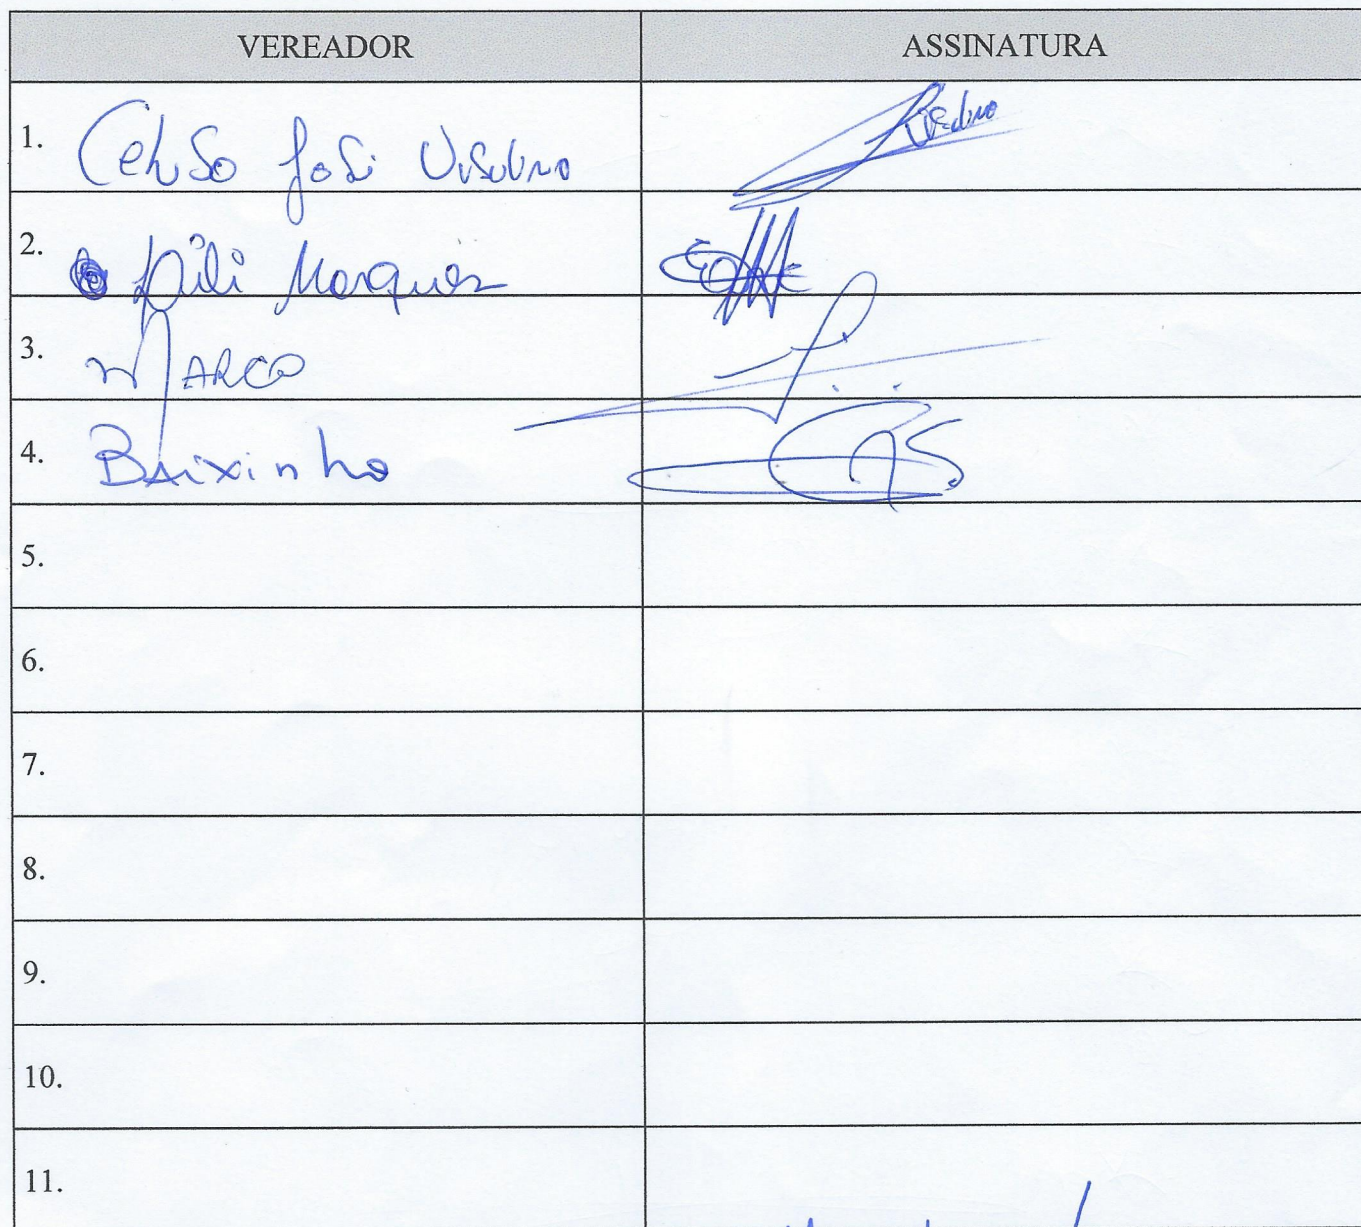 VEREADOR ASSINATURA
1. Celso José
2. Lili Marques
3. MARCO
4. Baixinho
5.
6.
7.
8.
9.
10.
11.